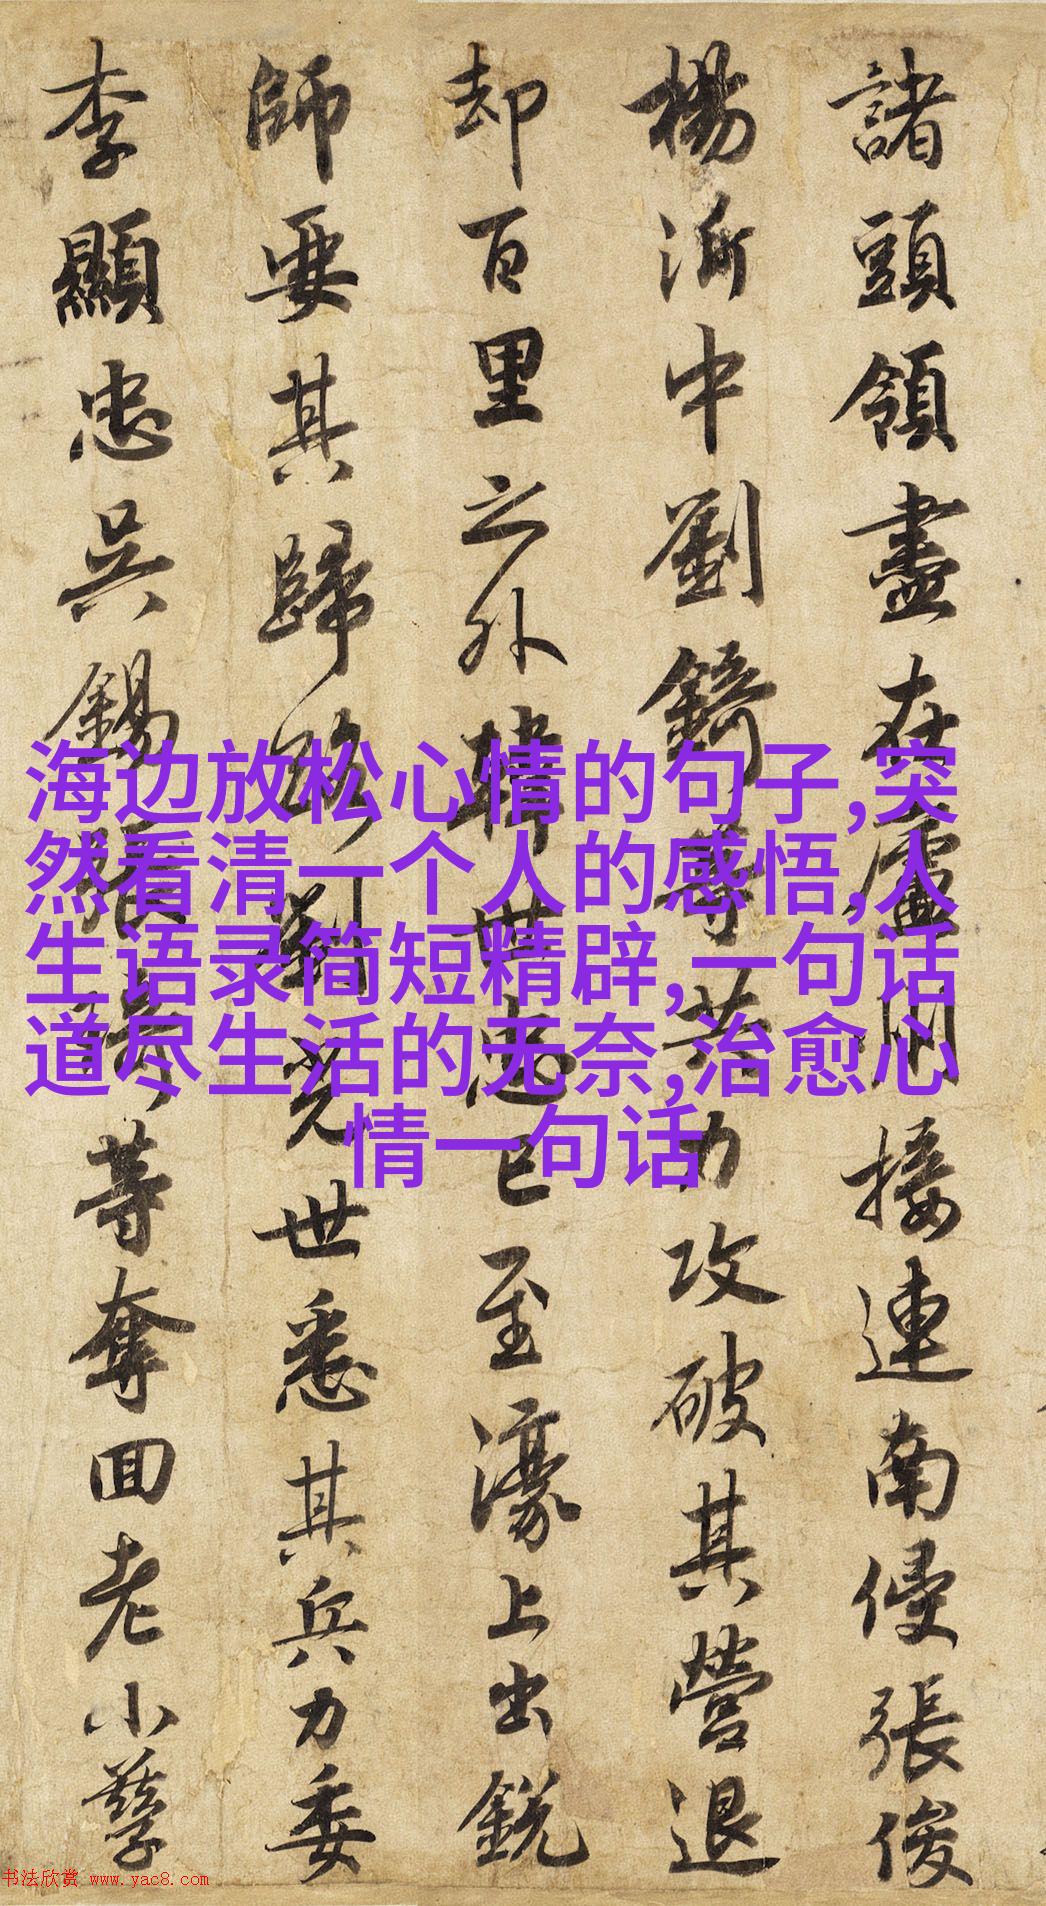 諸頭領盡在廬州接連南侵張俊
楊沂中劉錡等共力攻破其營退
却百里之外韓世忠已至濠上出銳
師要其歸路劉光世悉其兵力委
李顯忠吳錫張琦等奪回老小孳
海边放松心情的句子,突
然看清一个人的感悟,人
生语录简短精辟,一句话
道尽生活的无奈,治愈心
情一句话
书法欣赏 www.yac8.com